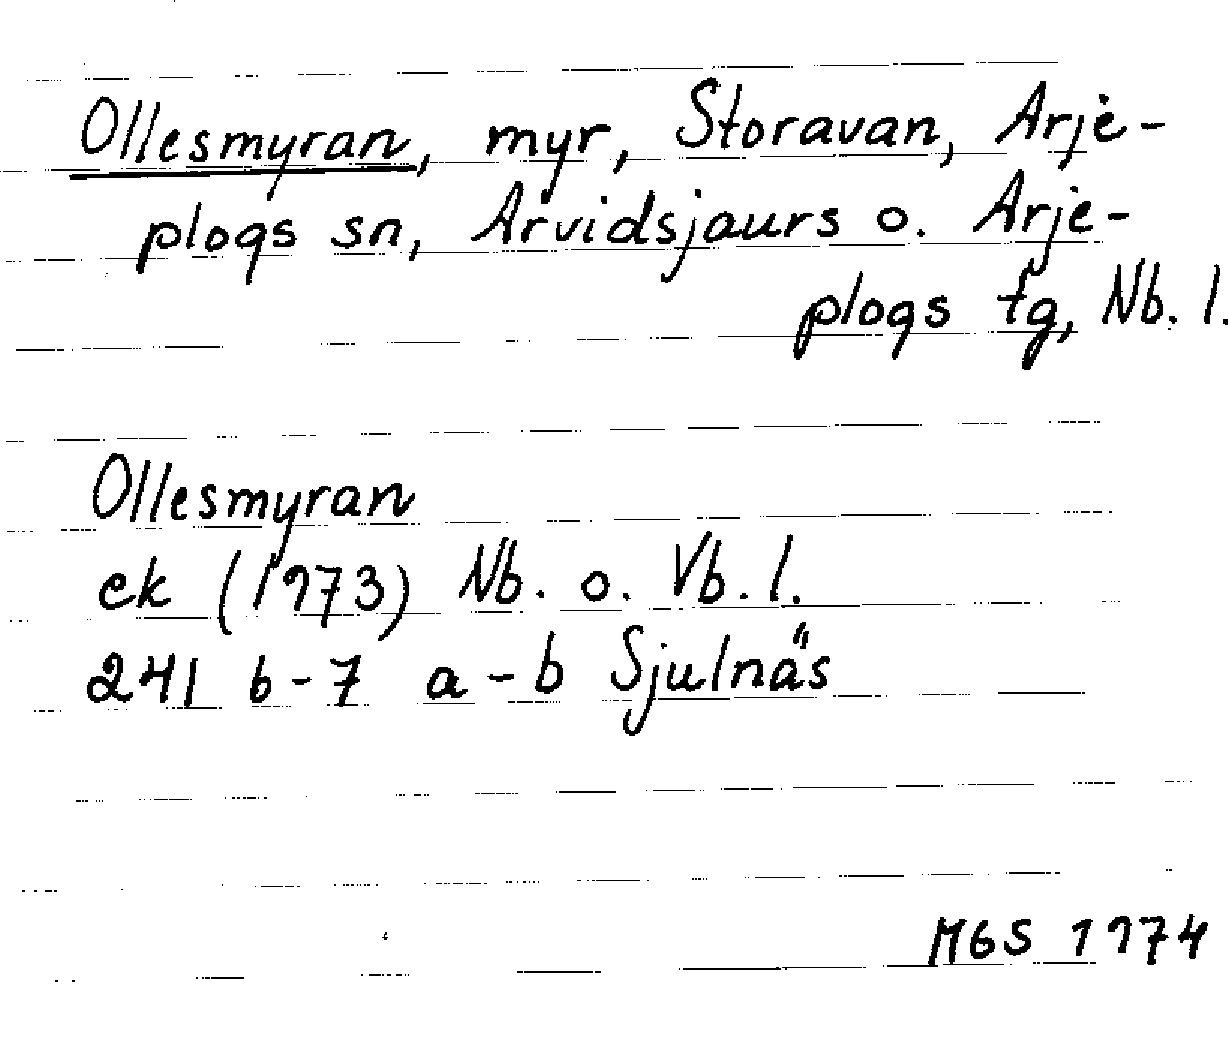 Ollesmyran, myr, Storavan, Arje-
plogs sn, Arvidsjaurs o. Arje-
plogs tg, Nb. l.
Ollesmyran
ek (1973) Nb. o. Vb. l.
241 b-7 a-b Sjulnäs
MGS 1974